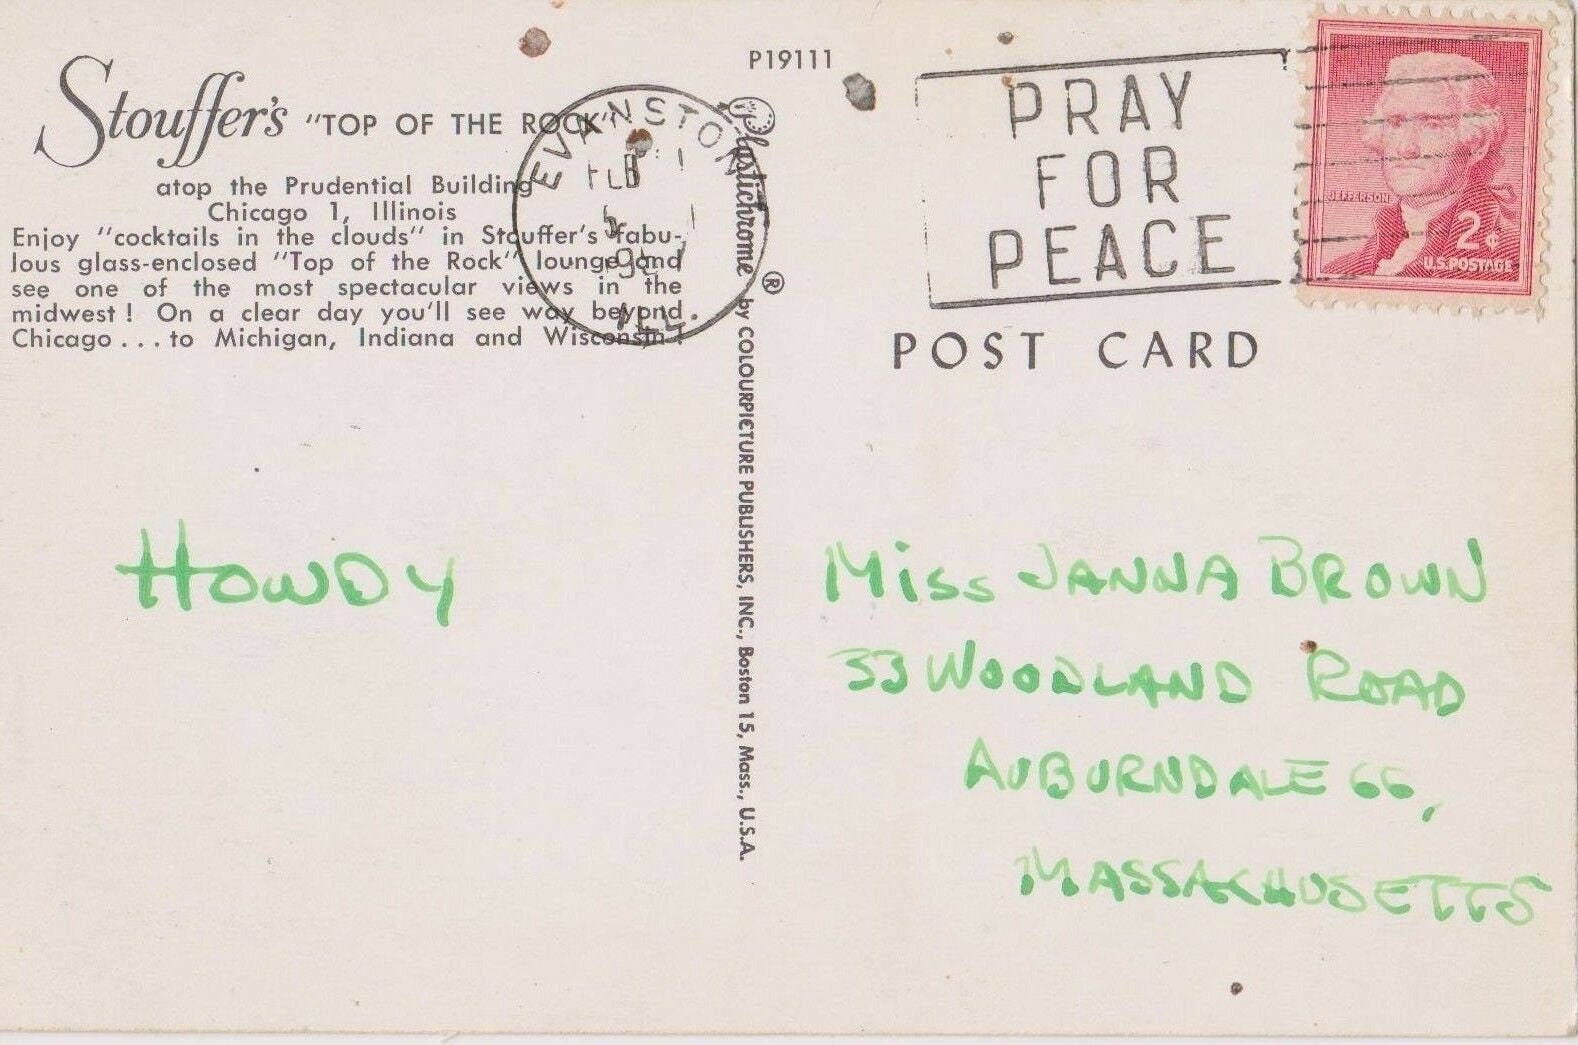 P19111
Stouffer's "TOP OF THE ROCK"
atop the Prudential Building
Chicago 1, Illinois
Enjoy "cocktails in the clouds" in Stouffer's fabu-
lous glass-enclosed "Top of the Rock" lounge and
see one of the most spectacular views in the
midwest! On a clear day you'll see way beyond
Chicago... to Michigan, Indiana and Wisconsin!
EVANSTON
ILL
PRAY
FOR
PEACE
JEFFERSON
2¢
U.S. POSTAGE
POST CARD
Plastichrome ® by COLOURPICTURE PUBLISHERS, INC., Boston 15, Mass., U.S.A.
HOWDY
MISS JANNA BROWN
33 WOODLAND ROAD
AUBURNDALE 66,
MASSACHUSETTS